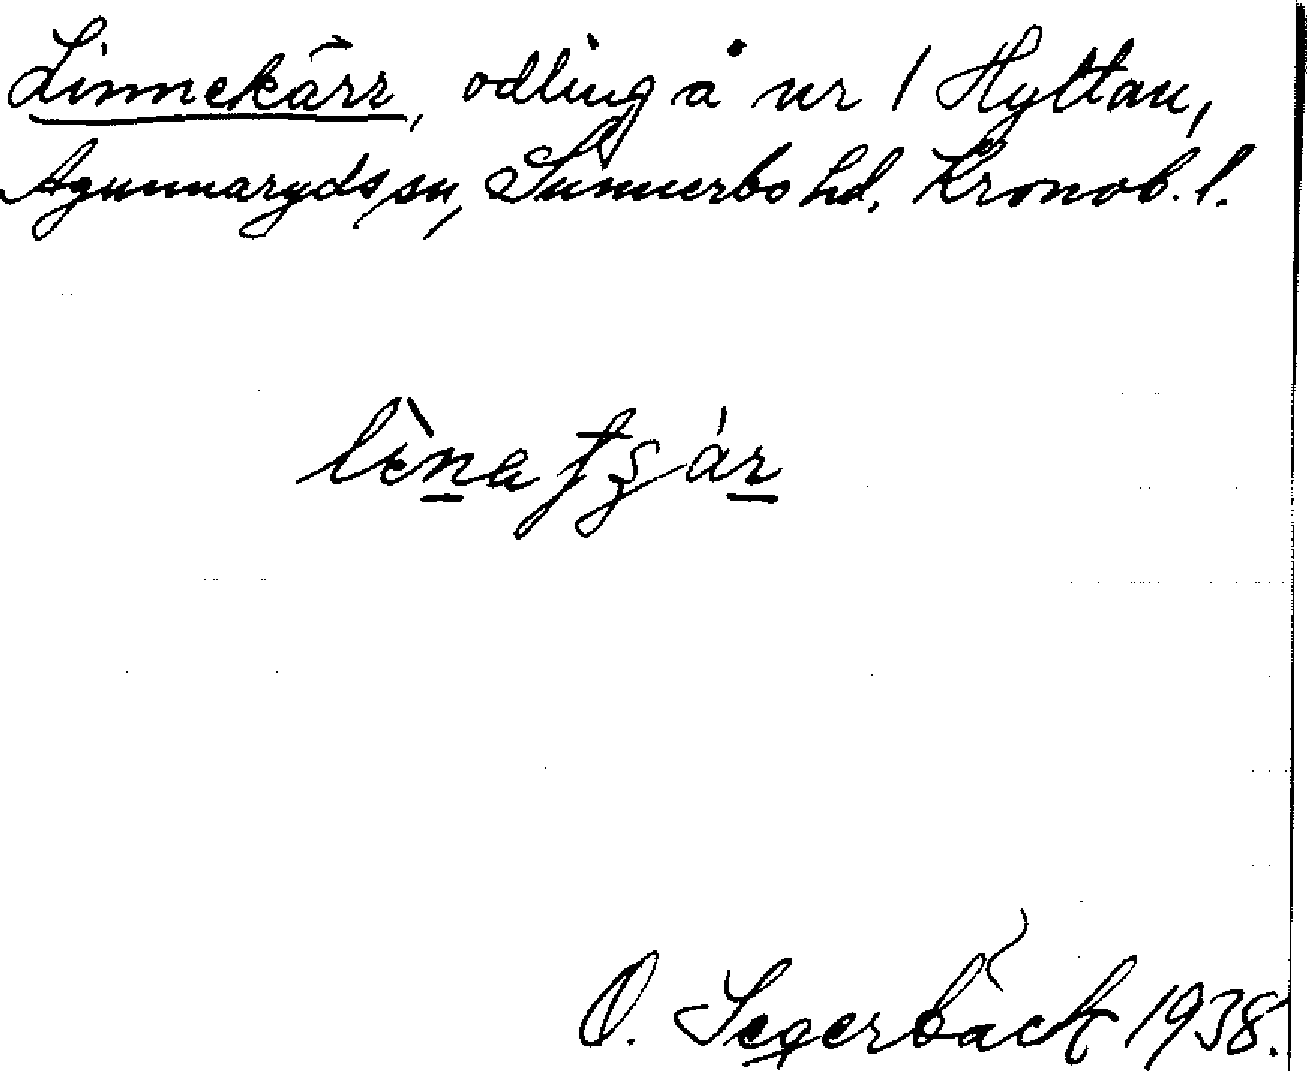 Linnekärr, odling å nr 1 Hyltan,
Agunnaryds sn, Sunnerbo hd. Kronob. l.
O. Segerbäck 1938.